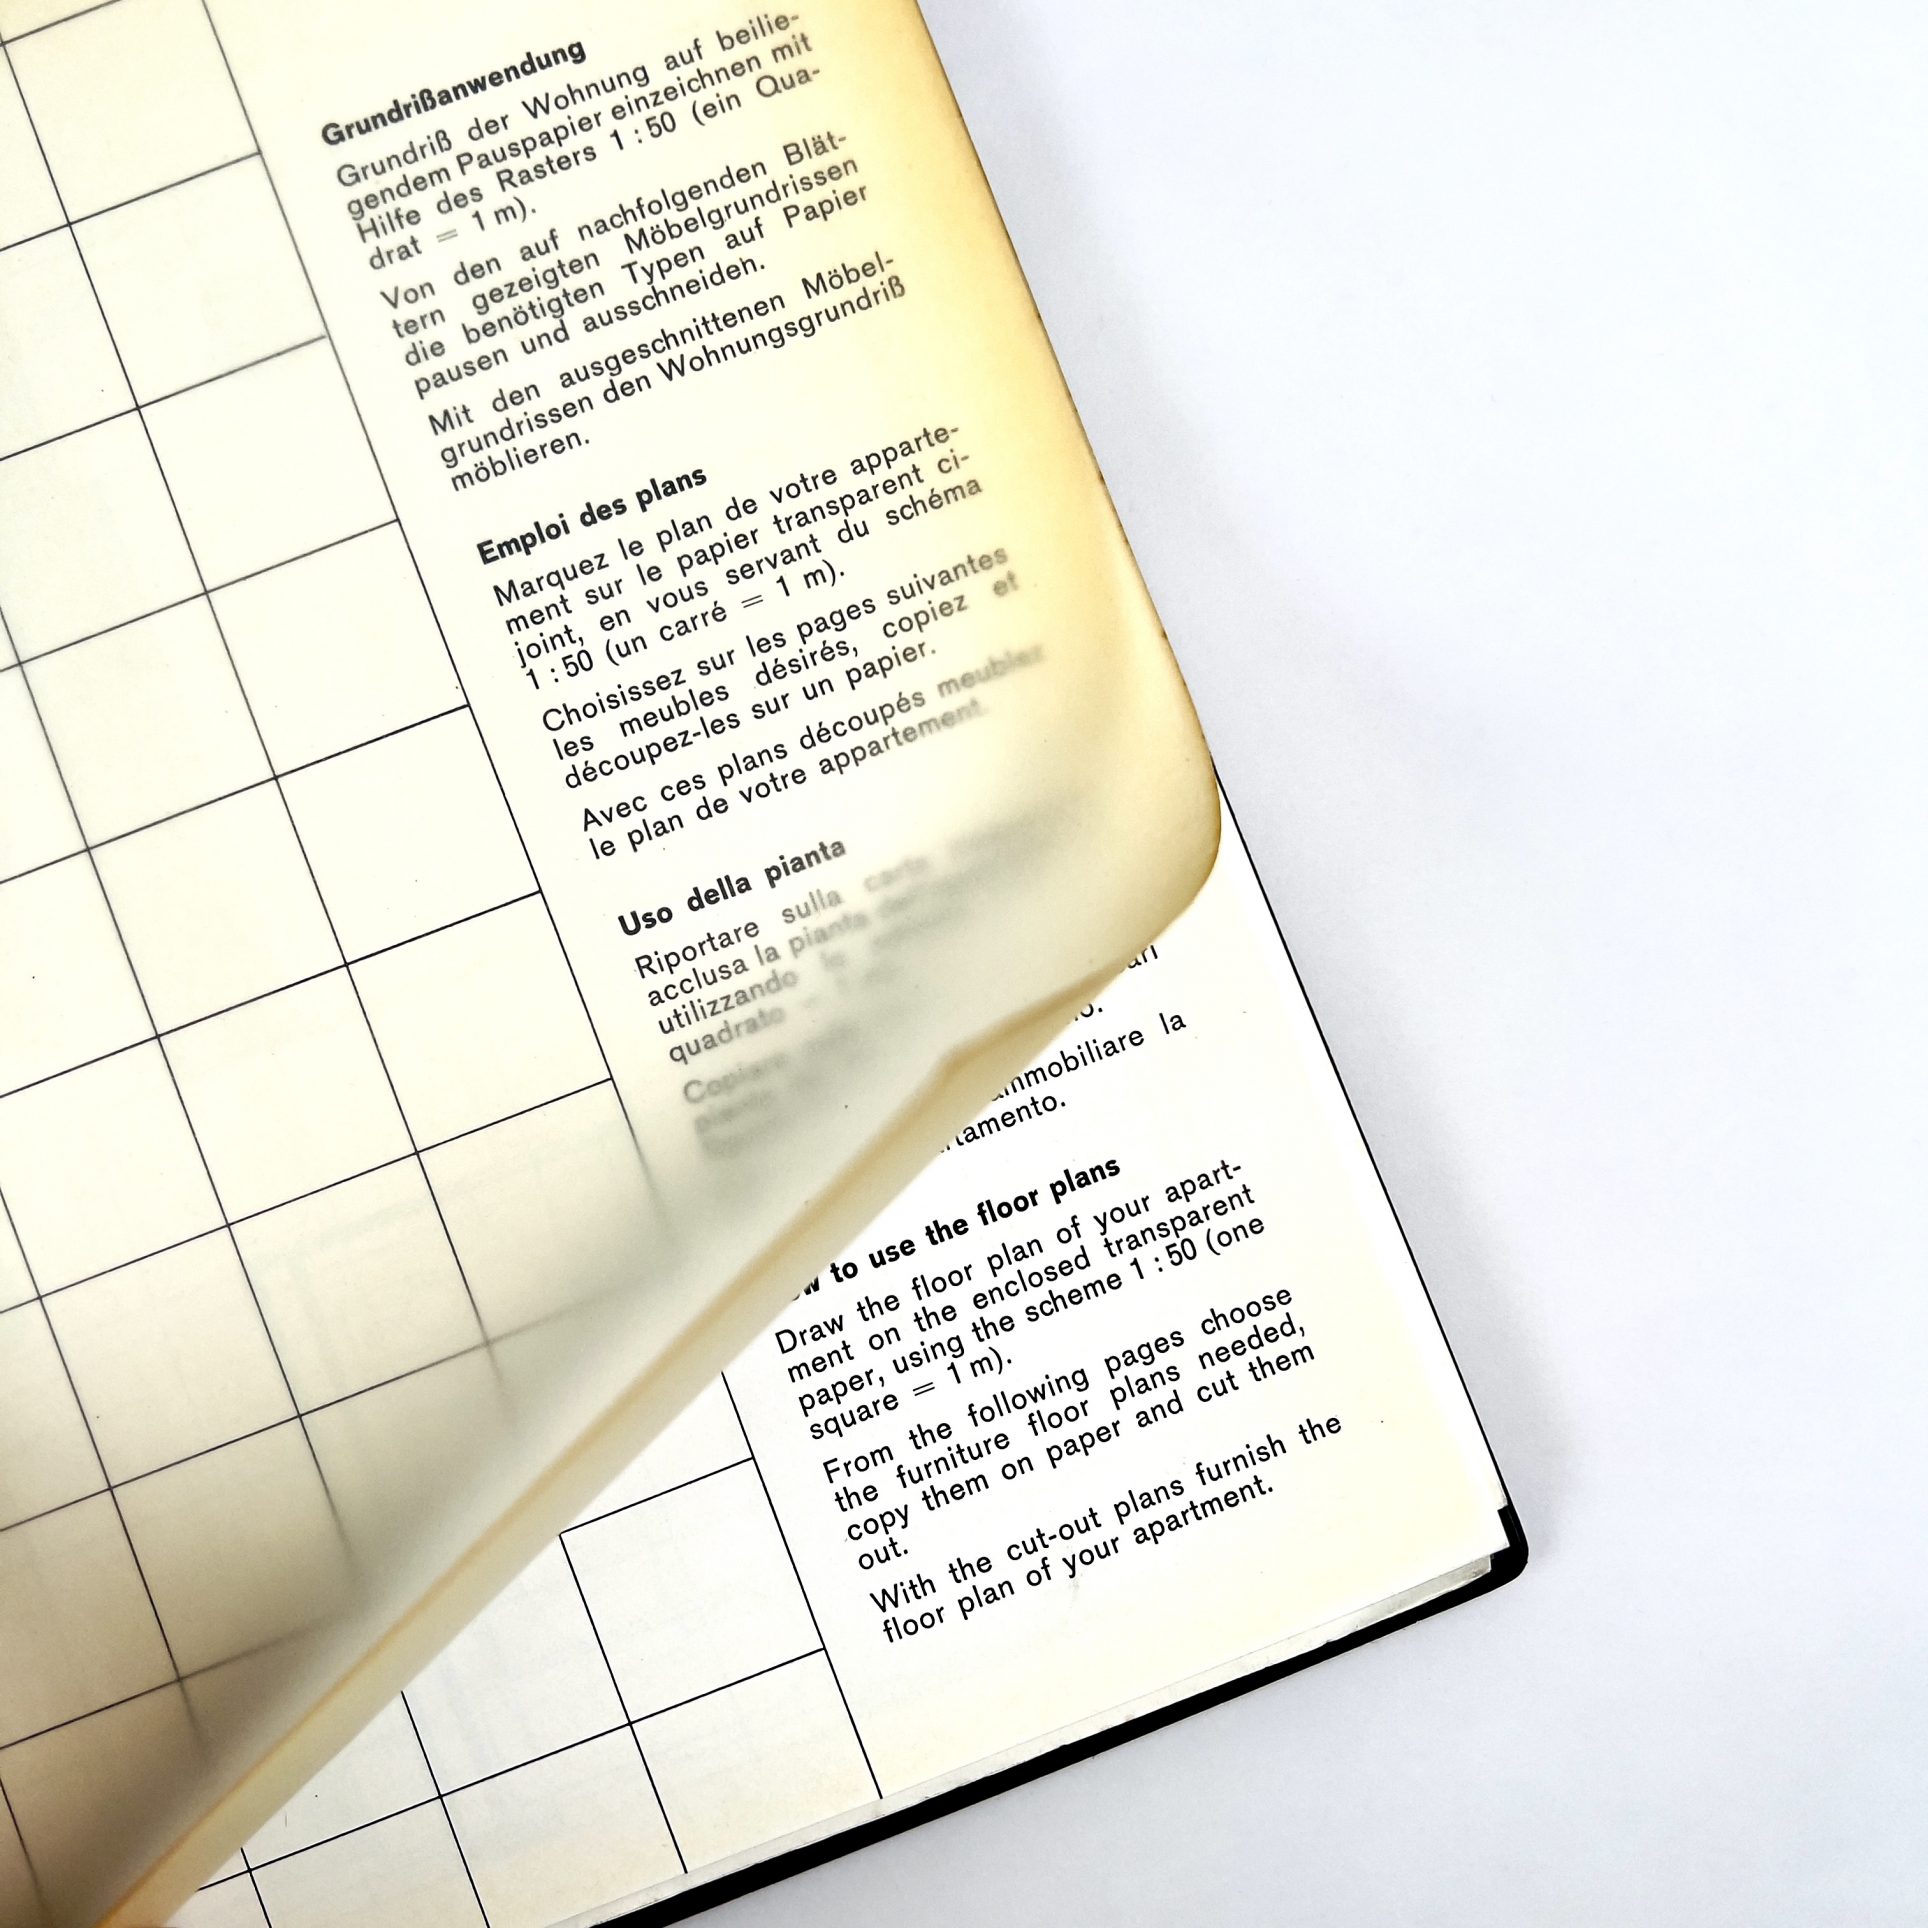 Grundrißanwendung
Grundriß der Wohnung auf beilie-
gendem Pauspapier einzeichnen mit
Hilfe des Rasters 1 : 50 (ein Qua-
drat = 1 m).
Von den auf nachfolgenden Blät-
tern gezeigten Möbelgrundrissen
die benötigten Typen auf Papier
pausen und ausschneiden.
Mit den ausgeschnittenen Möbel-
grundrissen den Wohnungsgrundriß
möblieren.
Emploi des plans
Marquez le plan de votre apparte-
ment sur le papier transparent ci-
joint, en vous servant du schéma
1 : 50 (un carré = 1 m).
Choisissez sur les pages suivantes
les meubles désirés, copiez et
découpez-les sur un papier.
Avec ces plans découpés meublez
le plan de votre appartement.
Uso della pianta
Riportare sulla carta
acclusa la pianta
utilizzando
quadrato
Copiare
ari
o.
ammobiliare la
rtamento.
ow to use the floor plans
Draw the floor plan of your apart-
ment on the enclosed transparent
paper, using the scheme 1 : 50 (one
square = 1 m).
From the following pages choose
the furniture floor plans needed,
copy them on paper and cut them
out.
With the cut-out plans furnish the
floor plan of your apartment.